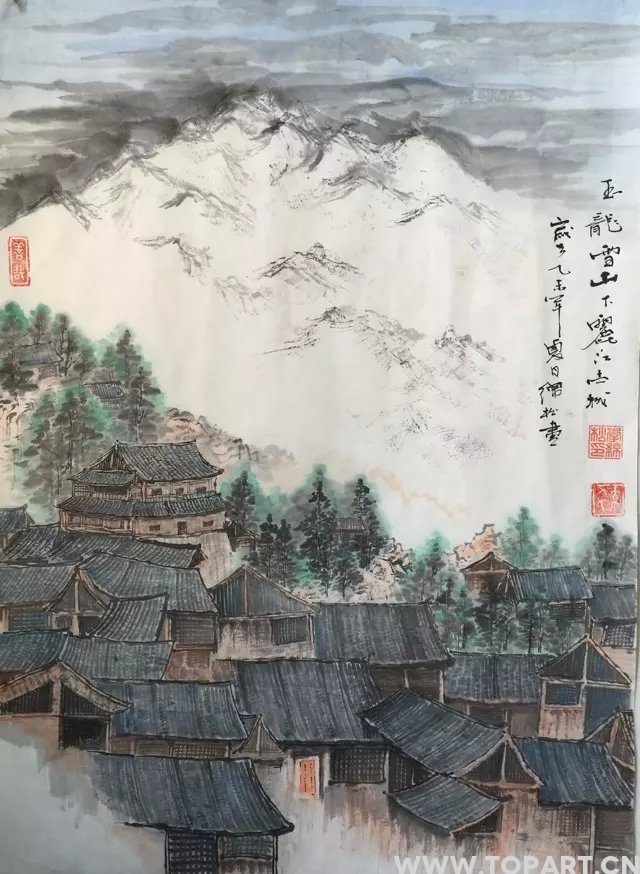 玉龍雪山下麗江古城
歲次乙未年夏日綿松畫
善哉
WWW.TOPART.CN